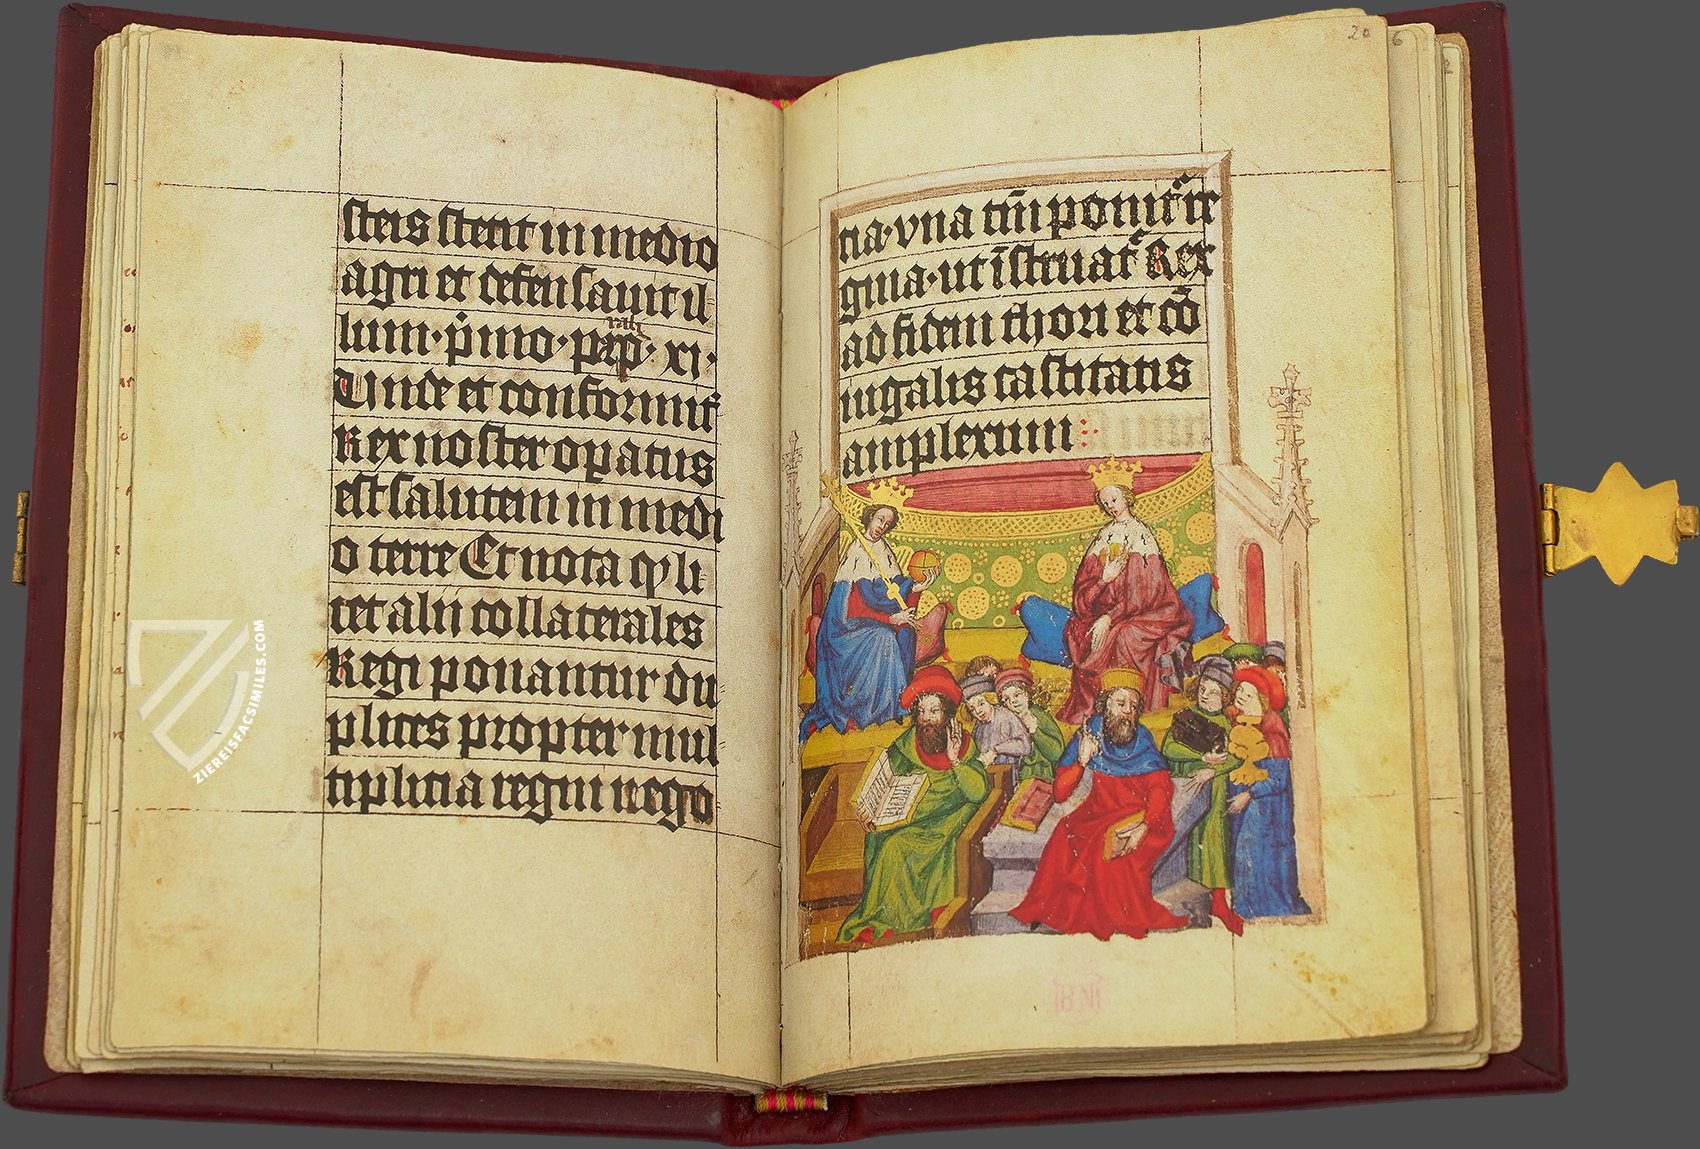 steis stetit in medio
agri et defensauit il-
lum · p̓mo · pa̅rp̅ · xi ·
Vnde et conformit᷑
Rex noster opatus
est salutem in medi
o terre Et nota qͥ li-
cet alij collaterales
Regi ponantur du
plices propter mul
tiplicia regni nego
20
6
cia · vna tn̅ ponit᷑ ir
guia · ut ī̅struat᷑ Rex
ad fidem thori et co̅
iugalis castitatis
amplexum :
BN
ZIEREISFACSIMILES.COM